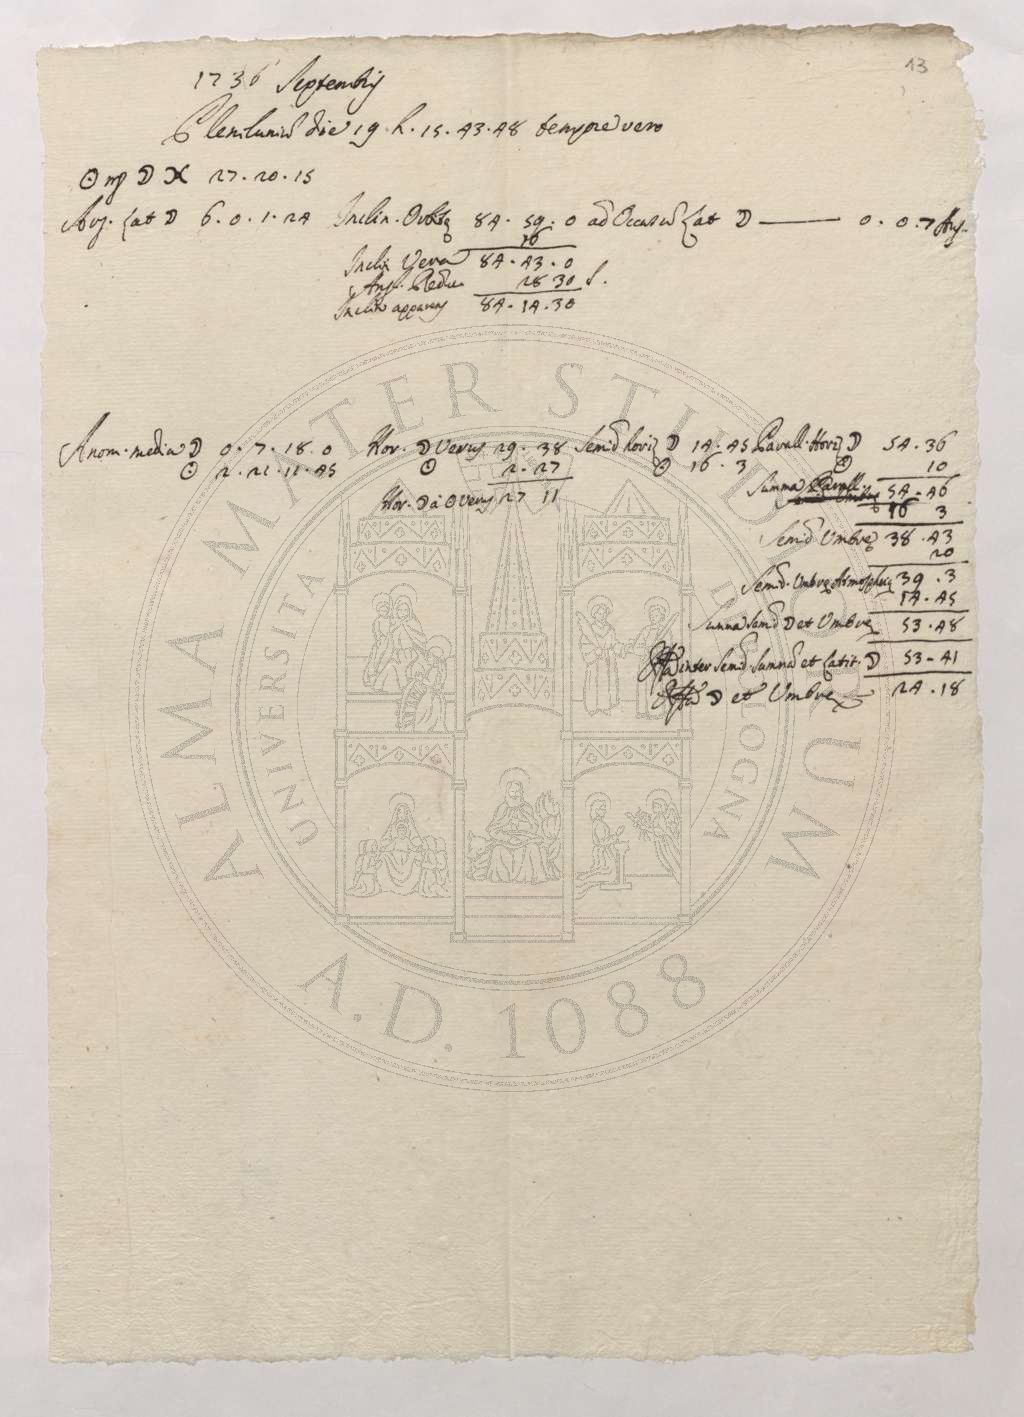 13
1736 Septembris
Plenilunium die 19 h. 15. 43. 48 tempore vero
☉ ♍ ☽ ♓ 27. 20. 15
Arg. Lat ☽ 6. 0. 1. 24 Inclin. Orbitę 84. 59. 0 ad Occasum Lat ☽ —— 0. 0. 7 Au.
16
Inclin Vera 84. 43. 0
Ang. Reduc 28 30 S.
Inclin apparens 84. 14. 30
Anom. media ☽ 0. 7. 18. 0 Hor. ☽ Verus 29. 38 Semid horiz ☽ 14. 45 Parall. Horiz ☽ 54. 36
☉ 2. 21. 11. 45 ☉ 2. 27 ☉ 16. 3 ☉ 10
Hor. ☽ à ☉ Verus 27 11 Summa Parall. 54. 46
16 3
Semid Umbrę 38. 43
20
Semid. Umbrę Atmospherię 39. 3
14. 45
Summa Semid ☽ et Umbrę 53. 48
inter Semid. Summam et Latit. ☽ 53. 41
☽ et Umbrę 24. 18
ALMA MATER STUDIORUM
UNIVERSITÀ DI BOLOGNA
A.D. 1088